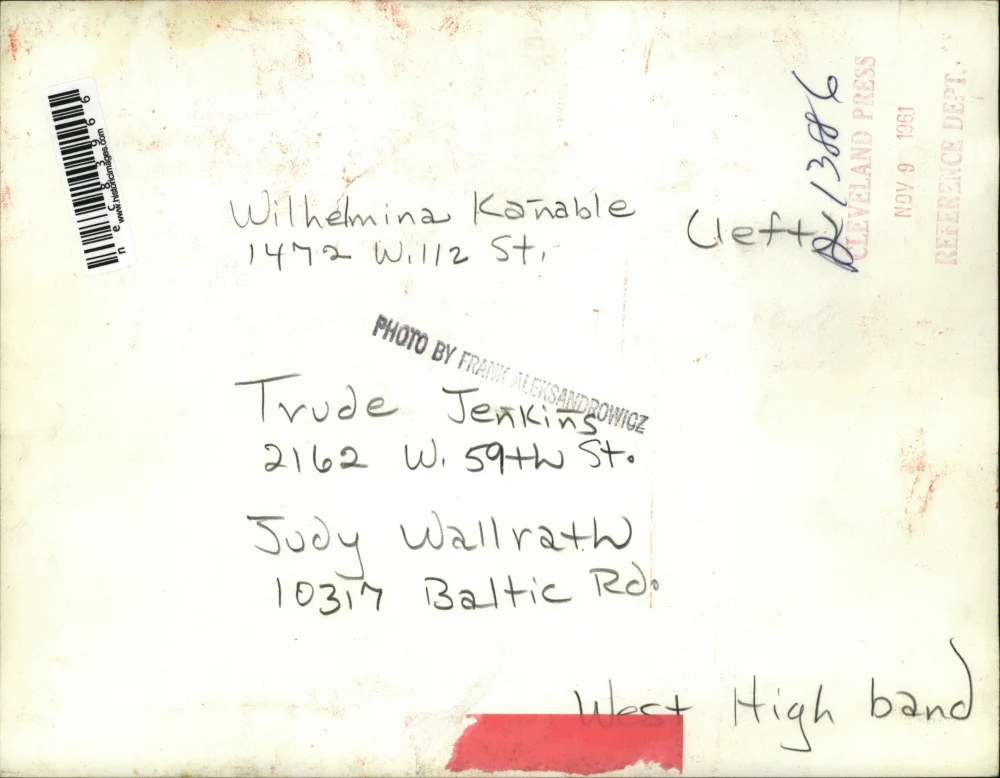 Wilhelmina Kanable
1472 W. 112 St.
(left)
A 13886
CLEVELAND PRESS
NOV 9 1961
REFERENCE DEPT.
necC83966
www.historicimages.com
PHOTO BY FRANK ALEKSANDROWICZ
Trude Jenkins
2162 W. 59th St.
Judy Wallrath
10317 Baltic Rd.
West High band